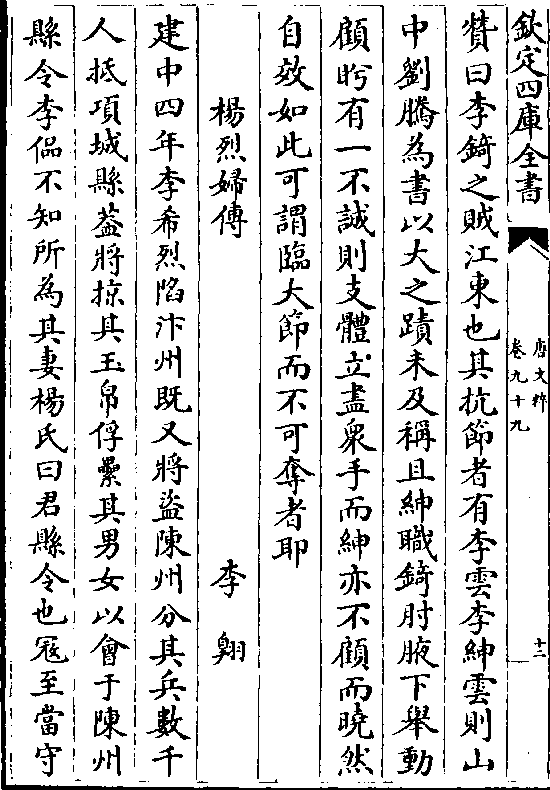 欽定四庫全書
唐文粹
卷九十九
十二
贊曰李錡之賊江東也其抗節者有李雲李紳雲則山
中劉騰為書以大之蹟未及稱且紳職錡肘腋下舉動
顧盻有一不誠則支體立盡衆手而紳亦不顧而曉然
自效如此可謂臨大節而不可奪者耶
楊烈婦傳 李翺
建中四年李希烈陷汴州既又將盜陳州分其兵數千
人抵項城縣葢將掠其玉帛俘纍其男女以會于陳州
縣令李偘不知所為其妻楊氏曰君縣令也寇至當守